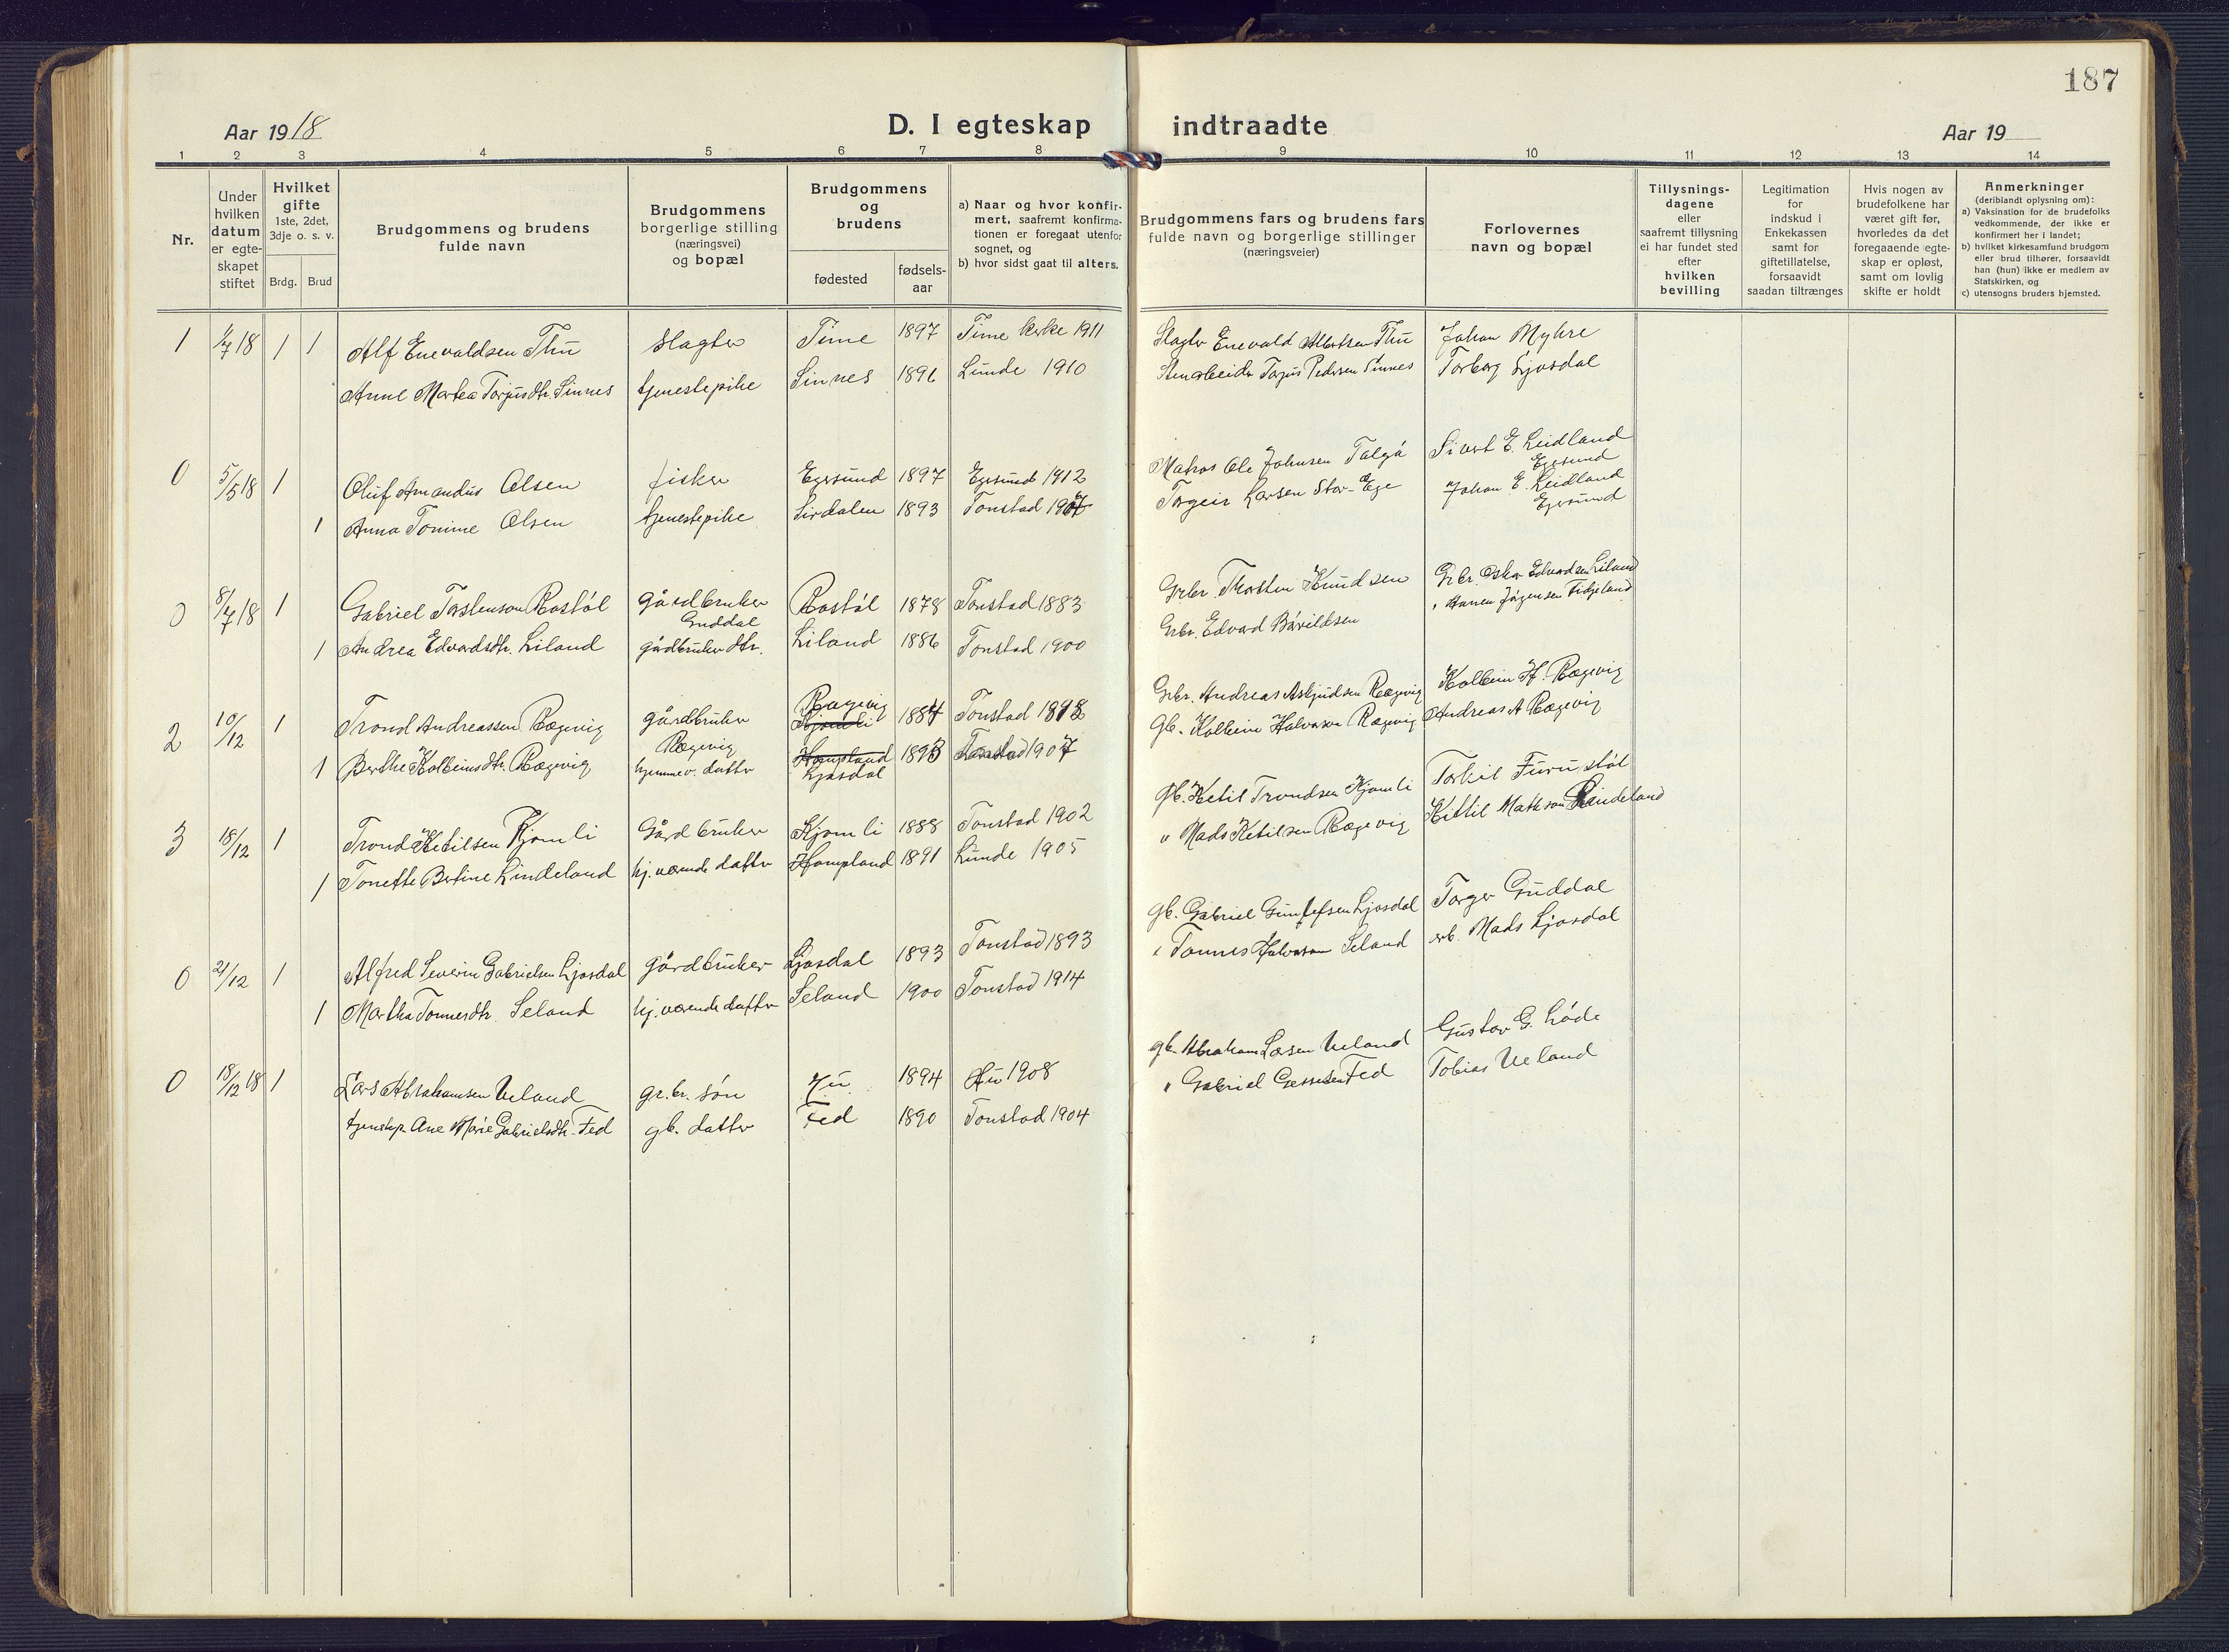 187
Aar 1918
D. I egteskap indtraadte
Aar 19
1 2 3 4 5 6 7 8 9 10 11 12 13 14
Nr.
Under
hvilken
datum
er egte-
skapet
stiftet
Hvilket
gifte
1ste, 2det,
3dje o. s. v.
Brdg. Brud
Brudgommens og brudens
fulde navn
Brudgommens
borgerlige stilling
(næringsvei)
og bopæl
Brudgommens
og
brudens
fødested
fødsels-
aar
a) Naar og hvor konfir-
mert, saafremt konfirma-
tionen er foregaat utenfor
sognet, og
b) hvor sidst gaat til alters.
Brudgommens fars og brudens fars
fulde navn og borgerlige stillinger
(næringsveier)
Forlovernes
navn og bopæl
Tillysnings-
dagene
eller
saafremt tillysning
ei har fundet sted
efter
hvilken
bevilling
Legitimation
for
indskud i
Enkekassen
samt for
giftetillatelse,
forsaavidt
saadan tiltrænges
Hvis nogen av
brudefolkene har
været gift før,
hvorledes da det
foregaaende egte-
skap er opløst,
samt om lovlig
skifte er holdt
Anmerkninger
(deriblandt oplysning om):
a) Vaksination for de brudefolks
vedkommende, der ikke er
konfirmert her i landet;
b) hvilket kirkesamfund brudgom
eller brud tilhører, forsaavidt
han (hun) ikke er medlem av
Statskirken, og
c) utensogns bruders hjemsted.
1 1/7 18 1 1 Alf Enevaldsen Thu slagter Time 1897 Time kirke 1911 Slagter Enevald Albertsen Thu Johan Myhre
Anne Martea Torjusdtr. Sinnes tjenestepike Sinnes 1891 Lunde 1910 Torjus Pedersen Sinnes Torborg Ljosdal
0 5/5 18 1 Oluf Amandus Olsen fisker Egersund 1897 Egersund 1912 Matros Ole Johnsen Talgá Sivert E. Leidland
Egersund
1 Anna Tomine Olsen tjenestepike Sirdalen 1893 Tonstad 1907 Torgeir Larsen Stor-Ege Johan E. Leidland
Egersund
0 8/7 18 1 Gabriel Torstenson Rostøl gårdbruker Rostøl 1878 Tonstad 1883 Grbr. Thorsten Knudsen Grbr. Oskar Edvardsen Liland
Guddal
1 Andrea Edvardsdtr. Liland gårdbruker dtr. Liland 1886 Tonstad 1900 Grbr. Edvard Bårildsen " Jørgensen Fidjeland
2 10/12 1 Trond Andreassen Rægevig gårdbruker Rægevig Kjomli 1884 Tonstad 1898 Grbr. Andreas Asbjudsen Rægevig Kolbein H. Rægevig
Rægevig
1 Berthe Kolbeinsdtr. Rægevig hjemmev. datter Hompland Ljosdal 1893 Tonstad 1907 Gb. Kolbein Halvorson Rægevig Andreas A Rægevig
3 18/12 1 Trond Ketilsen Kjomli Gårdbruker Kjomli 1888 Tonstad 1902 Gb. Ketil Trondsen Kjomli Torkil Furustøl
1 Tonette Bertine Lindeland hj. værende datter Hompland 1891 Lunde 1905 " Mads Ketilsen Rægevig Kittil Mathison Lindeland
0 21/12 1 Alfred Severin Gabrielsen Ljosdal gårdbruker Ljosdal 1893 Tonstad 1893 gb. Gabriel Gunlefsen Ljosdal Torger Guddal
1 Martha Tonnesdtr. Seland hj. værende datter Seland 1900 Tonstad 1914 " Tonnes Halvorson Seland Mads Ljosdal
0 18/12 18 1 Lars Abrahamsen Ueland gr. br. søn Hu 1894 Hu 1908 gb. Abraham Larsen Ueland Gustav G. Løde
tjenstep. Ane Marie Gabrielsdtr. Fed gb. datter Fed 1890 Tonstad 1904 " Gabriel Fed Tobias Ueland